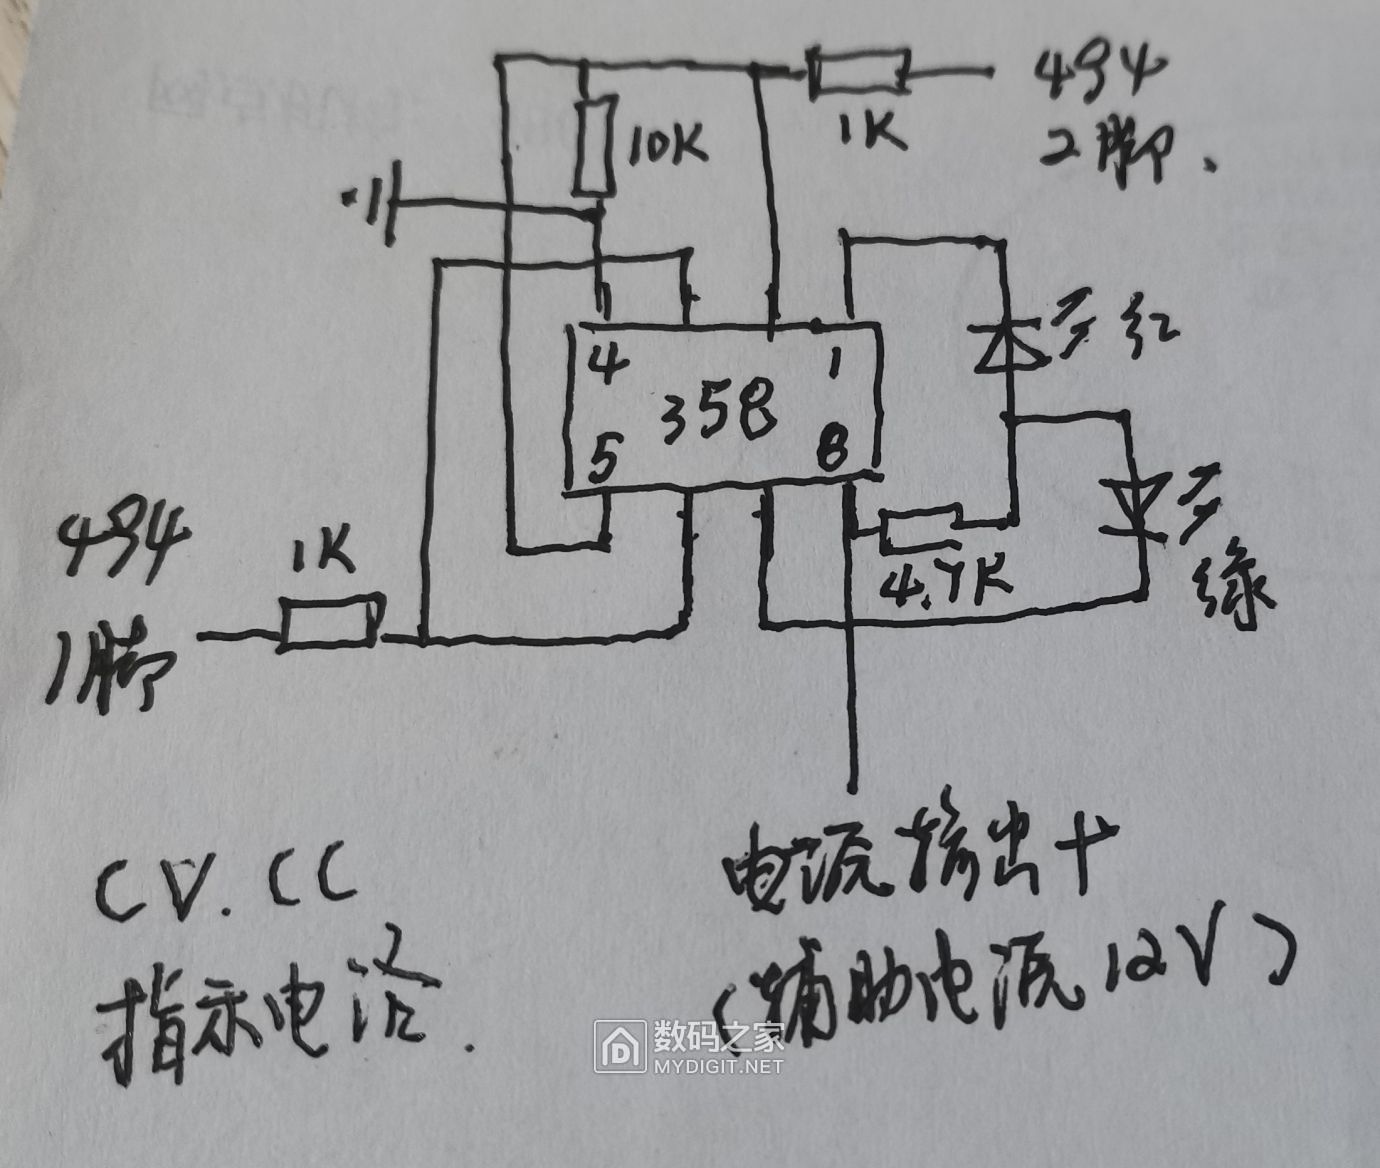 494
2脚.
1K
10K
红
4
1
358
5
8
494
1脚
1K
4.7K
绿
CV.CC
指示电路.
电源输出+
(辅助电源12V)
数码之家
MYDIGIT.NET